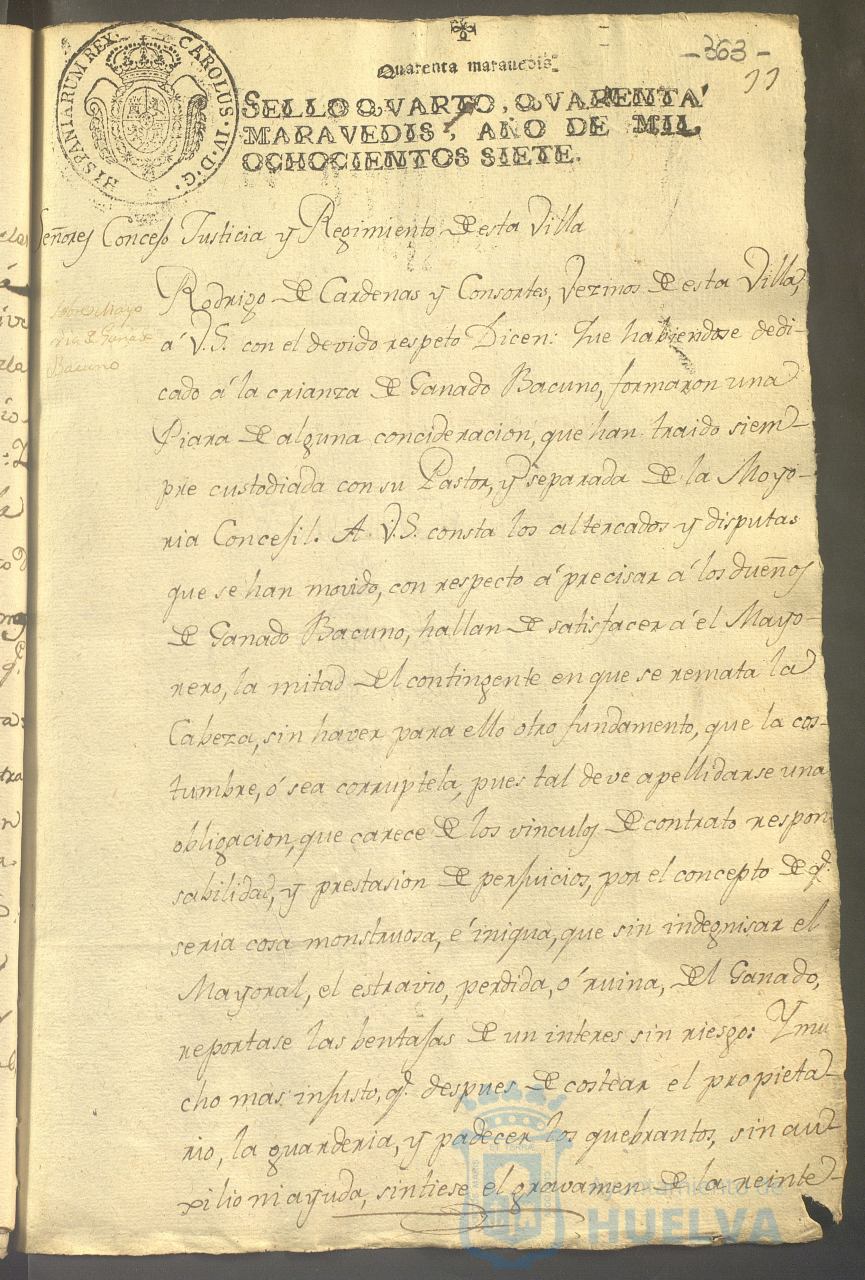 -363-
11
Quarenta maravedis
HISPANIARUM REX. CAROLUS. IV. D. G.
SELLO QVARTO, QVARENTA
MARAVEDIS, AÑO DE MIL
OCHOCIENTOS SIETE.
Señores Concejo Justicia y Regimiento de esta Villa
sobre Mayo
ria de Ganado
Bacuno
Rodrigo de Cardenas y Consortes, Vezinos de esta Villa,
á V.S. con el devido respeto Dicen: Que habiendose dedi-
cado á la crianza de Ganado Bacuno, formaron una
Piara de alguna concideracion, que han traido siem-
pre custodiada con su Pastor, y separada de la Mayo-
ria Concejil. A V.S. consta los altercados y disputas
que se han movido, con respecto á precisar á los dueños
de Ganado Bacuno, hallan de satisfacer á el Mayo-
nero, la mitad del contingente en que se remata la
Cabeza, sin haver para ello otro fundamento, que la cos-
tumbre, ó sea corruptela, pues tal deve apellidarse una
obligacion, que carece de los vinculos de contrato respon
sabilidad, y prestasion de perjuicios, por el concepto de q.
seria cosa monstruosa, é iniqua, que sin indegnisar el
Mayoral, el estravio, perdida, ó ruina, del Ganado,
reportase las bentajas de un interes sin riesgo: Y mu
cho mas injusto, q. despues de costear el propieta-
rio, la guarderia, y padecer los quebrantos, sin au-
xilio ni ayuda, sintiese el gravamen de la reinte-
Ayuntamiento de
HUELVA